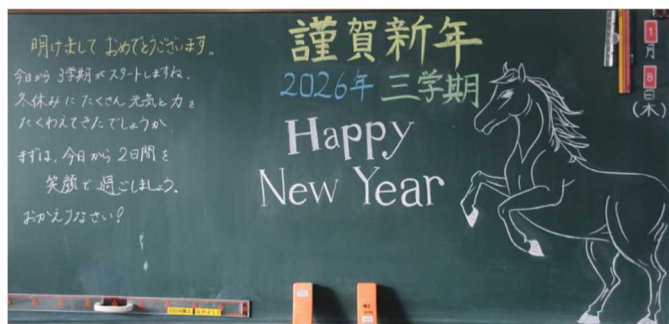 明けまして おめでとうございます。
今日から 3学期が スタートしますね。
冬休みに たくさん 元気と 力を
たくわえてきたでしょうか。
まずは、今日から 2日間を
笑顔で 過ごしましょう。
おかえりなさい!
謹賀新年
2026年 三学期
Happy
New Year
1
月
8
日
(木)